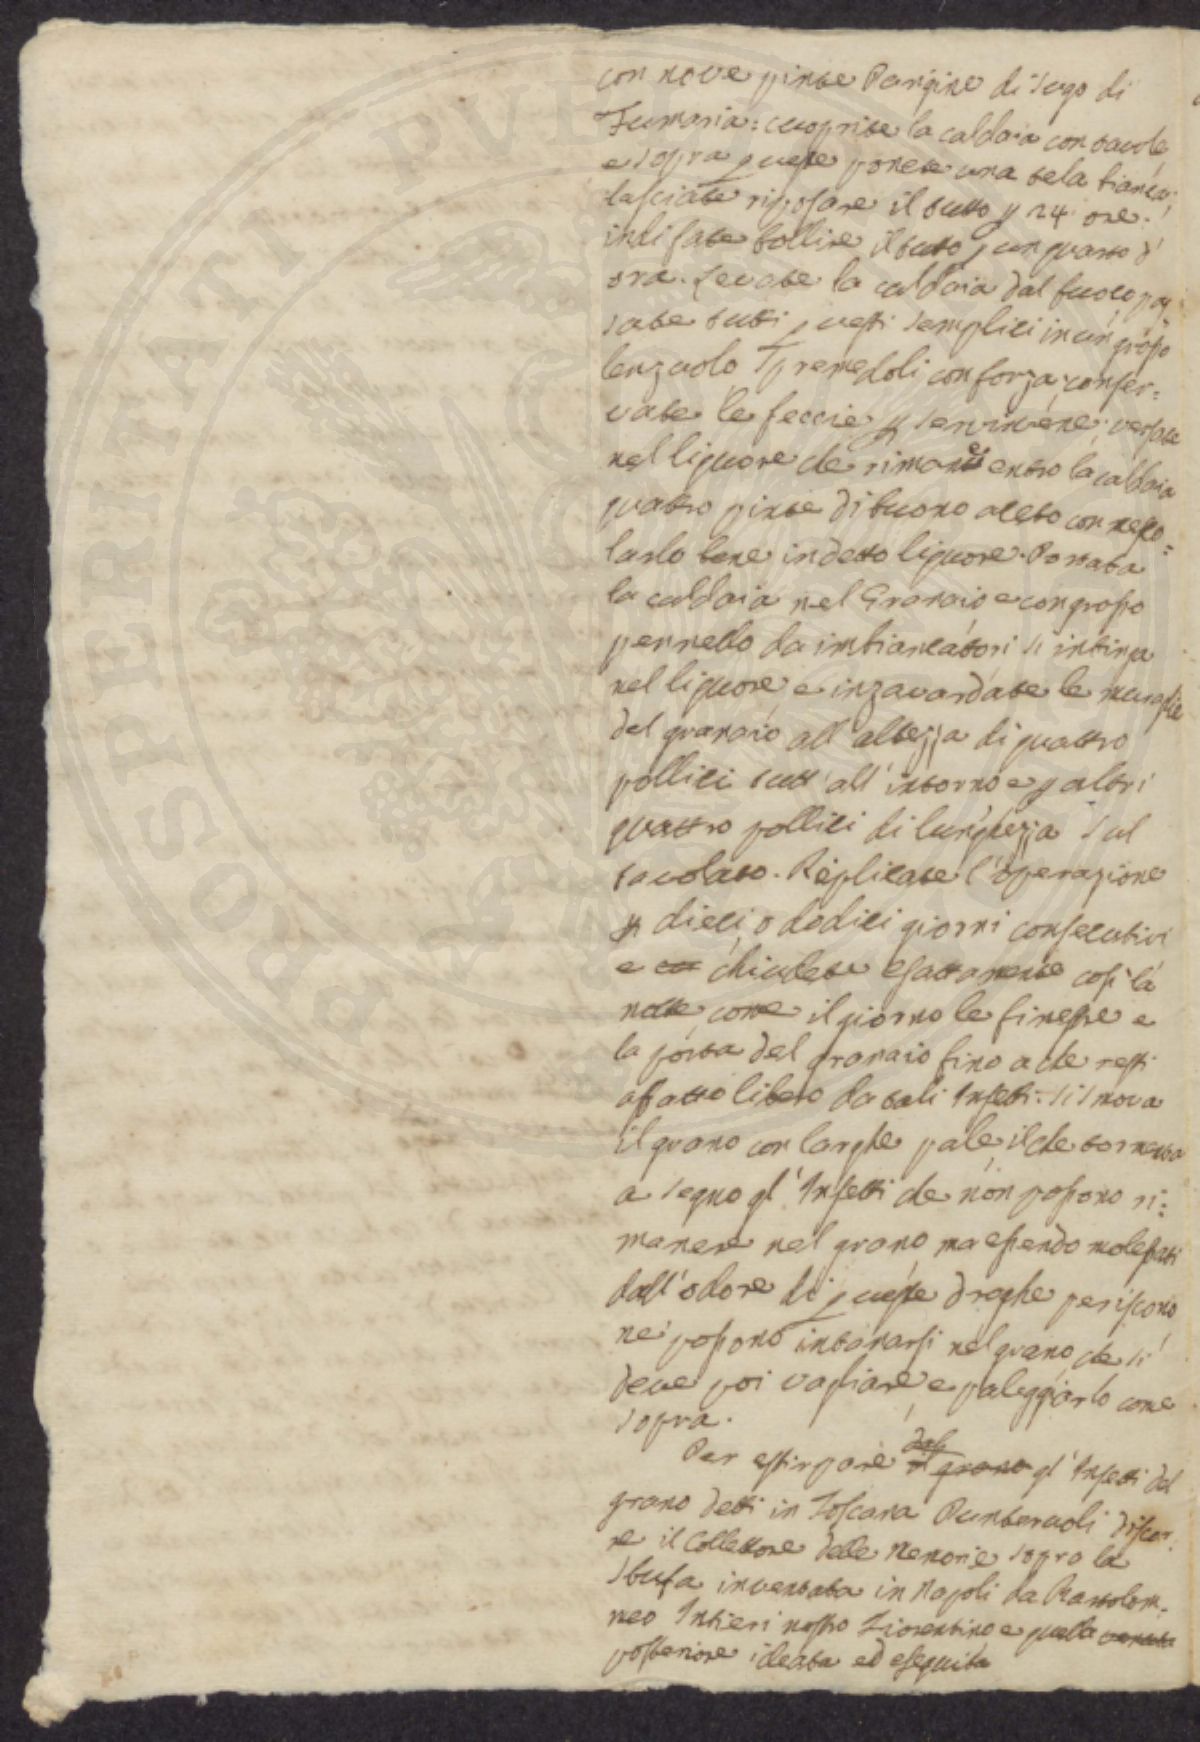 con nove pinte Parigine di sugo di
Fumaria: cuoprite la caldaia con tavole
e sopra queste ponete una tela bianca;
lasciate riposare il tutto p 24 ore.
indi fate bollire il tutto p un quarto d'
ora. Levate la caldaia dal fuoco pas
sate tutti questi semplici in un grosso
lenzuolo spremedoli con forza; conser=
vate le feccie p servirvene; versate
nel liquore che rimane entro la caldaia
quattro pinte di buono aceto con mesco=
larlo bene in detto liquore. Portata
la caldaia nel Granaio e con grosso
pennello da imbiancatori si intinga
nel liquore e inzavardate le muraglie
del granaio all' altezza di quattro
pollici tutt' all' intorno e p altri
quattro pollici di lunghezza sul
tavolato. Replicate l'operazione
p dieci o dodici giorni consecutivi
e chiudete esattamente così la
notte, come il giorno le finestre e
la porta del granaio fino a che resti
affatto libero da tali Insetti. Si smova
il grano con larghe pale, il che tormenta
a segno gl' Insetti che non possono ri=
manere nel grano ma essendo molestati
dall' odore di queste droghe periscono
ne possono intanarsi nel grano, che si
deve poi vagliare e paleggiarlo come
sopra.
Per estirpare dal il grano gl' Insetti del
grano detti in Toscana Punteruoli discor
re il Collettore delle Memorie sopra la
Stufa inventata in Napoli da Bartolom=
meo Intieri nostro Fiorentino e quella
posteriore ideata ed eseguita
PROSPERITATI PVBLICAE